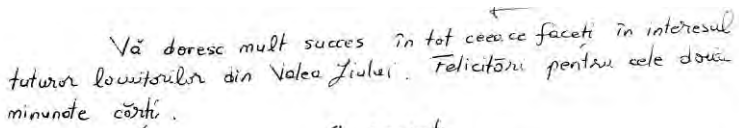 Vă doresc mult succes în tot ceea ce faceți în interesul
tuturor locuitorilor din Valea Jiului. Felicitări pentru cele două
minunate cărți.